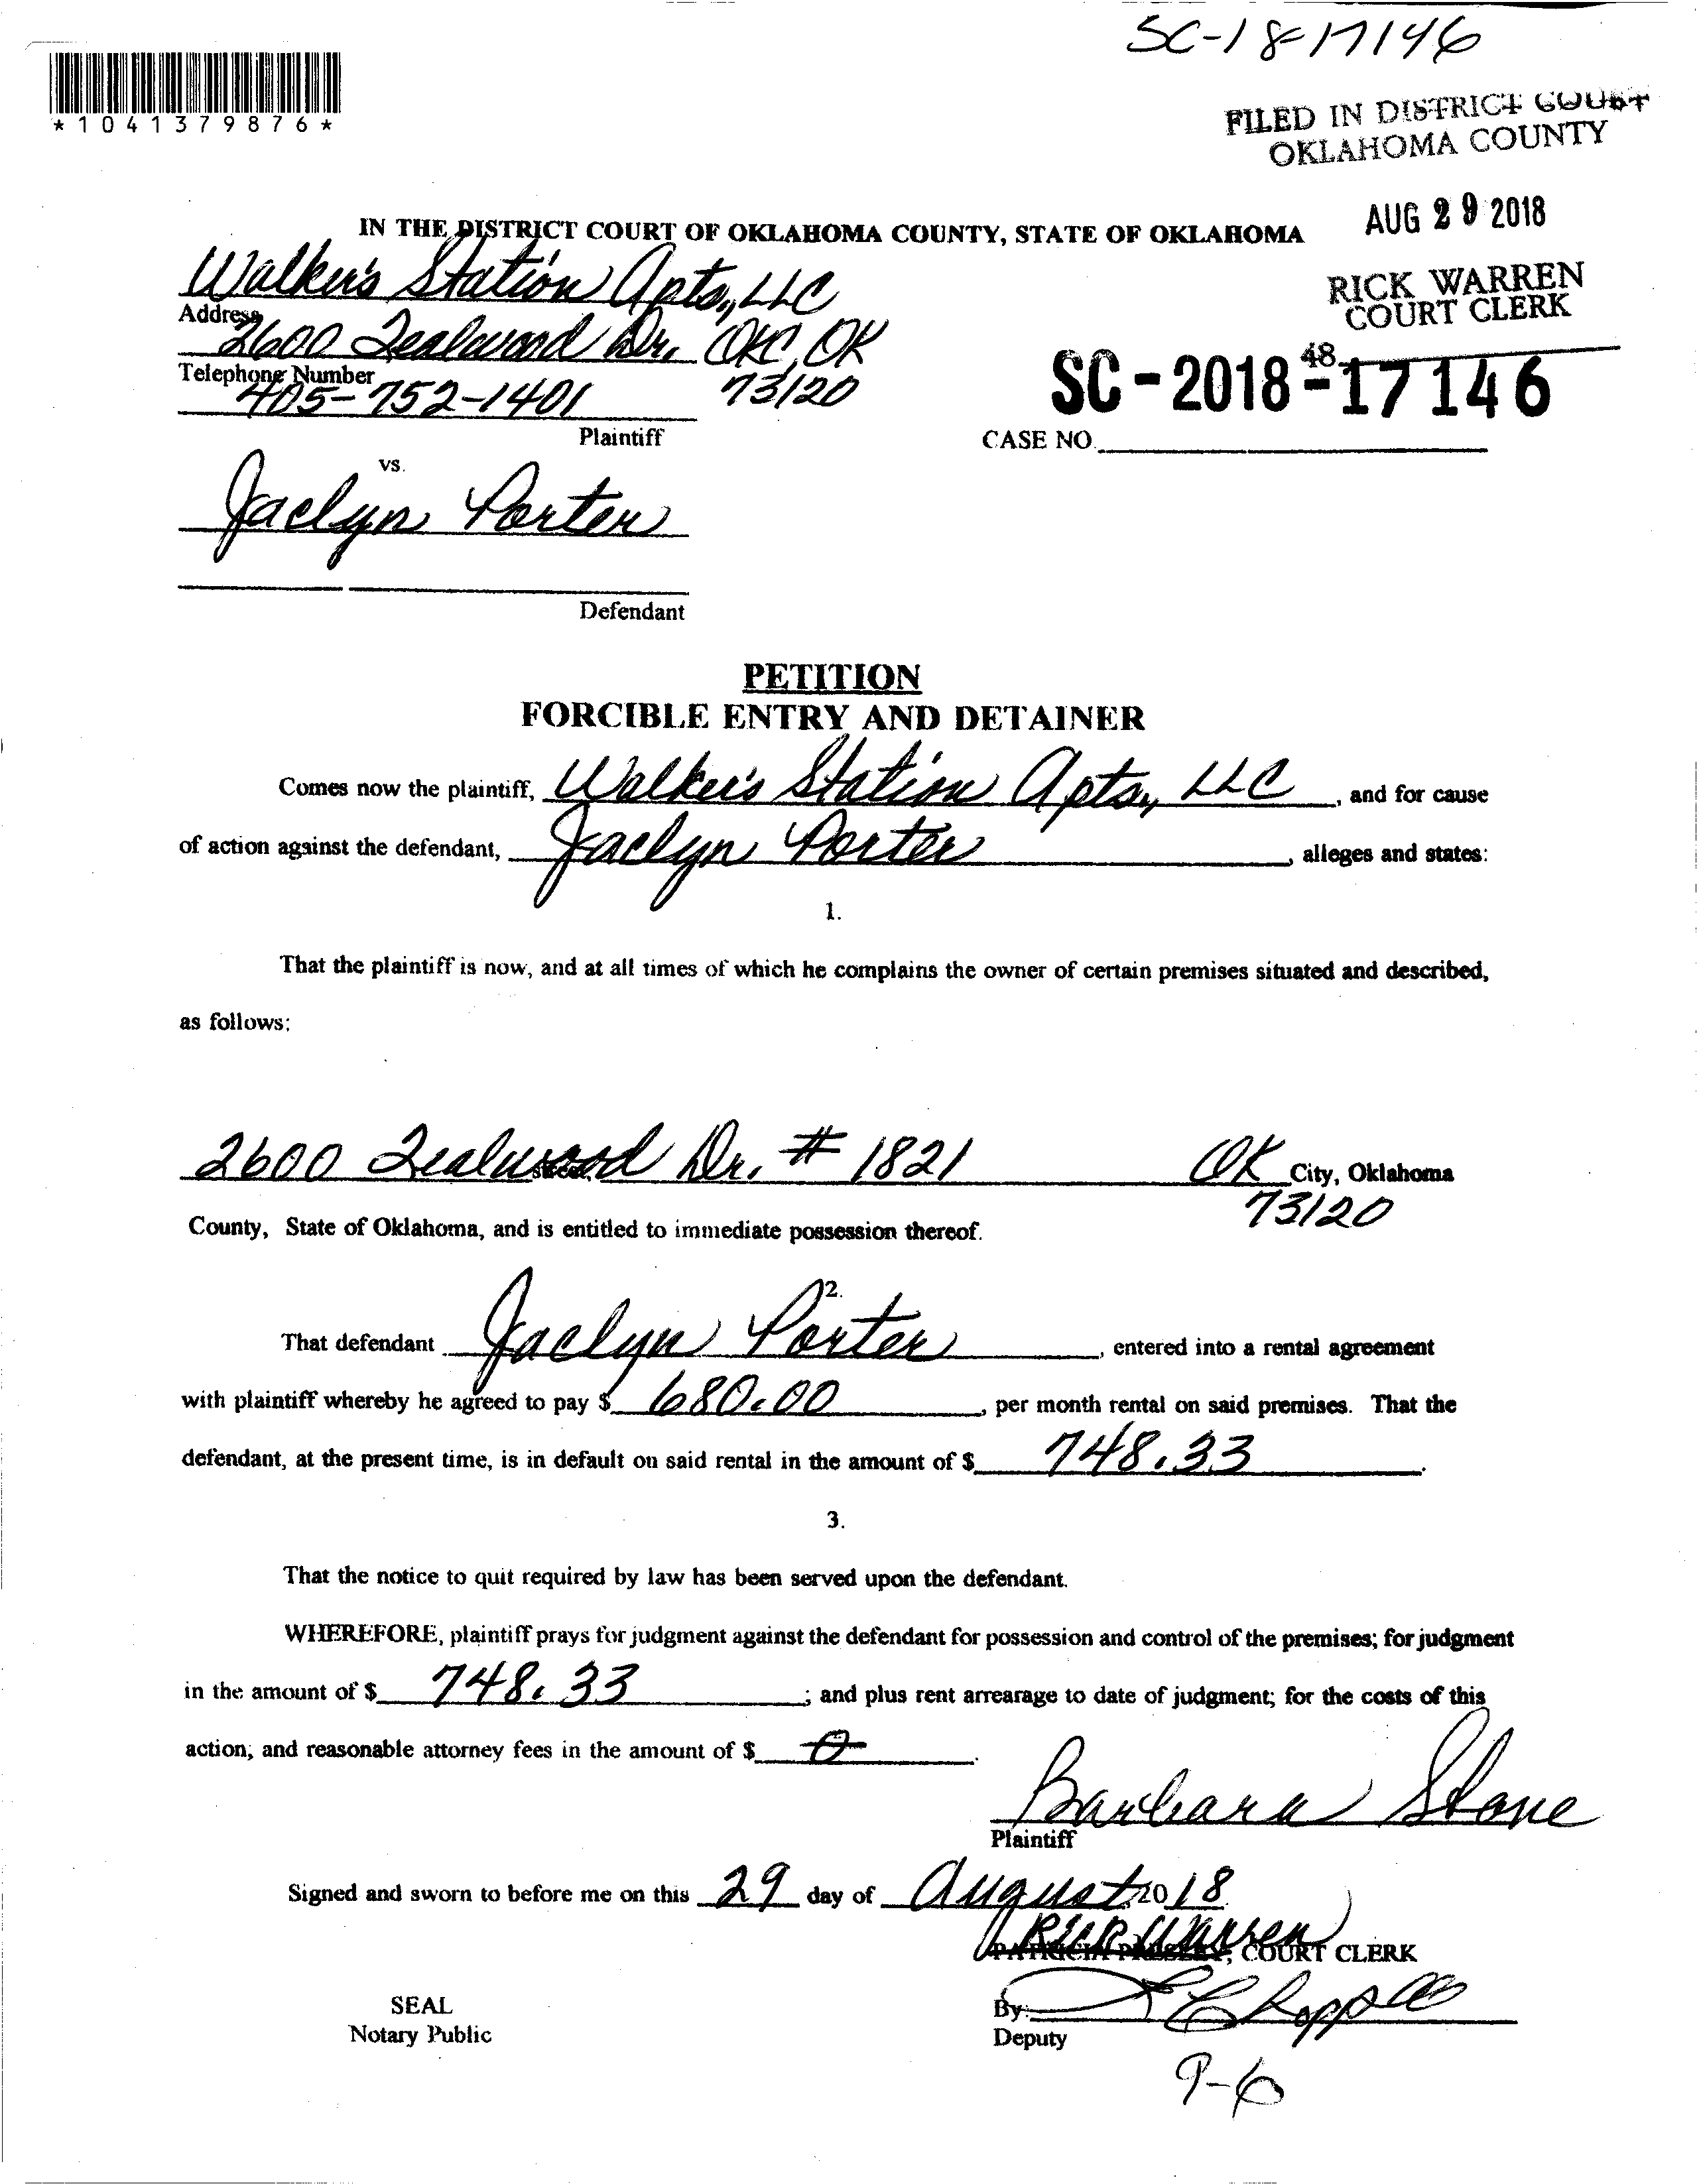 SC-18-17146
*1041379876*
FILED IN DISTRICT COURT
OKLAHOMA COUNTY
AUG 29 2018
RICK WARREN
COURT CLERK
48
SC-2018-17146
IN THE DISTRICT COURT OF OKLAHOMA COUNTY, STATE OF OKLAHOMA
Walker's Station Apts, LLC
Address
2600 Tealwood Dr. OKC, OK
Telephone Number
405-752-1401 73120
Plaintiff
CASE NO.
vs.
Jaclyn Porter
Defendant
PETITION
FORCIBLE ENTRY AND DETAINER
Comes now the plaintiff, Walker's Station Apts, LLC, and for cause
of action against the defendant, Jaclyn Porter, alleges and states:
1.
That the plaintiff is now, and at all times of which he complains the owner of certain premises situated and described,
as follows:
2600 Tealwood Dr. # 1821 OK City, Oklahoma
73120
County, State of Oklahoma, and is entitled to immediate possession thereof.
2.
That defendant Jaclyn Porter, entered into a rental agreement
with plaintiff whereby he agreed to pay $ 680.00, per month rental on said premises. That the
defendant, at the present time, is in default on said rental in the amount of $ 748.33.
3.
That the notice to quit required by law has been served upon the defendant.
WHEREFORE, plaintiff prays for judgment against the defendant for possession and control of the premises; for judgment
in the amount of $ 748.33; and plus rent arrearage to date of judgment; for the costs of this
action; and reasonable attorney fees in the amount of $ 0.
Barbara Stone
Plaintiff
Signed and sworn to before me on this 29 day of August 2018.
Rick Warren
PATRICIA PRESLEY, COURT CLERK
SEAL
Notary Public
By:
Deputy
9-6